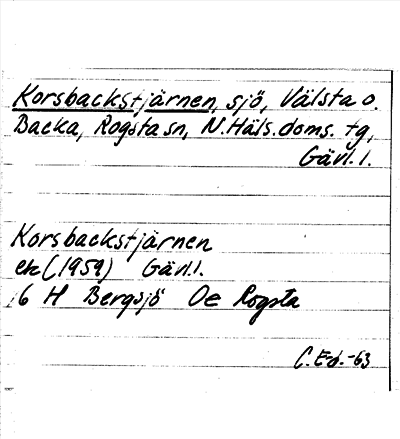 Korsbackstjärnen, sjö, Välsta o.
Backa, Rogsta sn, N.Häls.doms. tg,
Gävl. l.
Korsbackstjärnen
ek (1959) Gävl.l.
16 H Bergsjö Oe Rogsta
C. E-d. -63